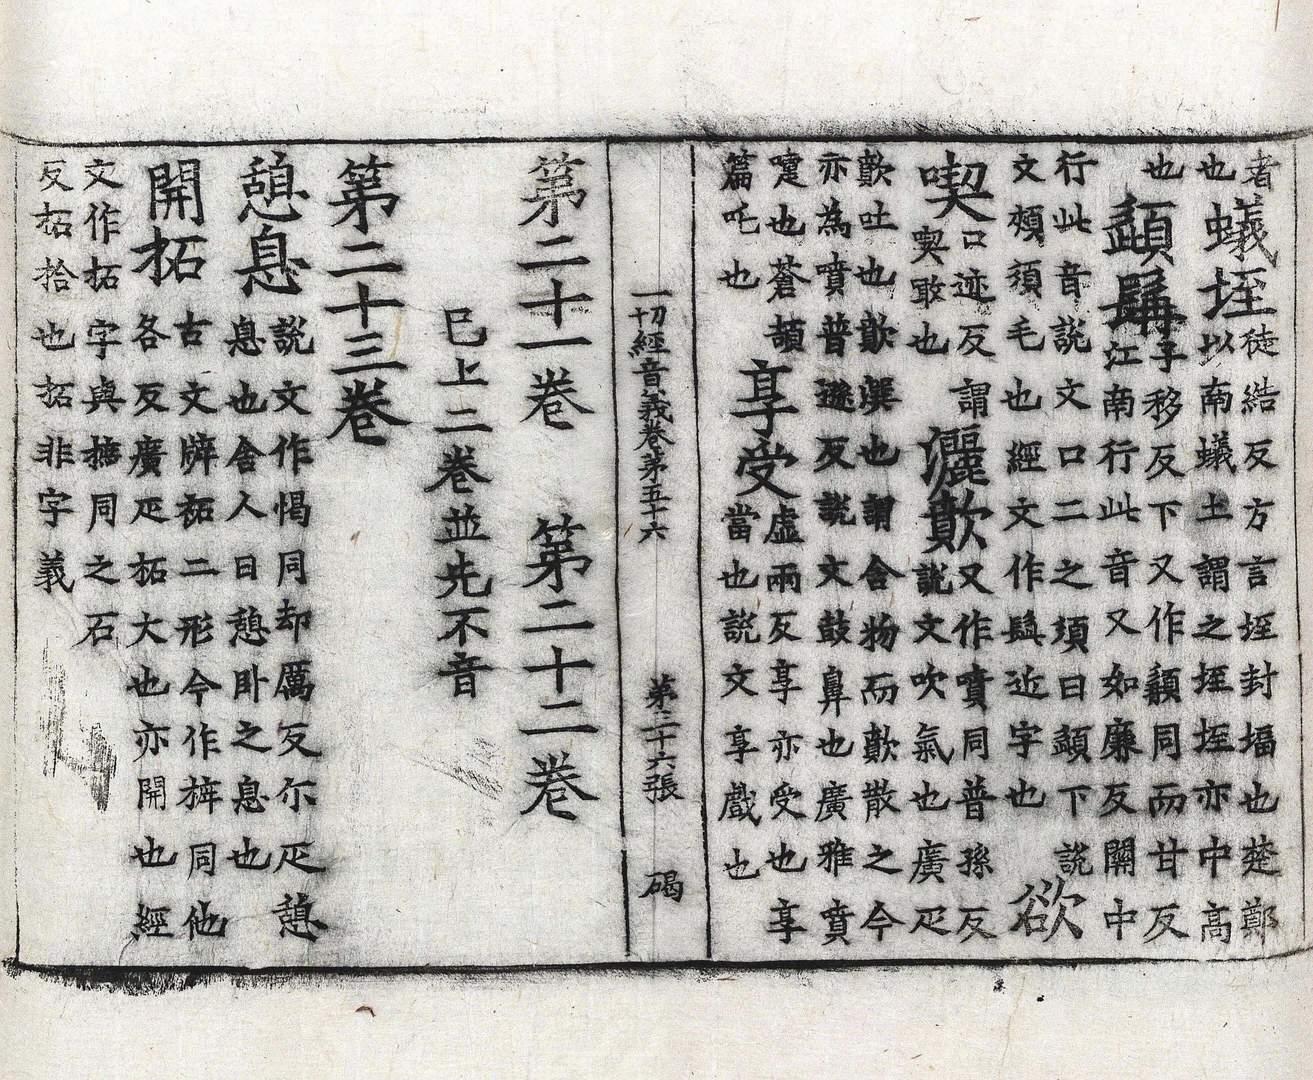 者
也
蟻垤
徒結反方言垤封塲也楚鄭
以南蟻土謂之垤垤亦中高
也
頾髯
子移反下又作䫇同而甘反
江南行此音又如廉反關中
行此音說文口二之須曰頾下說
文頰須毛也經文作髭近字也
欲
喫
口迹反謂
喫敢也
灑歕
又作噴同普孫反
說文吹氣也廣疋
歕吐也歕潠也謂含物而歕散之今
亦為噴普遜反說文鼓鼻也廣雅噴
嚏也蒼頡
篇吒也
享受
虛兩反享亦受也享
當也說文享戲也
一切經音義卷第五十六 第三十六張 碣
第二十一卷 第二十二卷
已上二卷並先不音
第二十三卷
憩息
說文作愒同却厲反尒疋憩
息也舍人曰憩卧之息也
開拓
古文袥二形今作同他
各反廣疋拓大也亦開也經
文作拓字與摭同之石
反拓拾也拓非字義